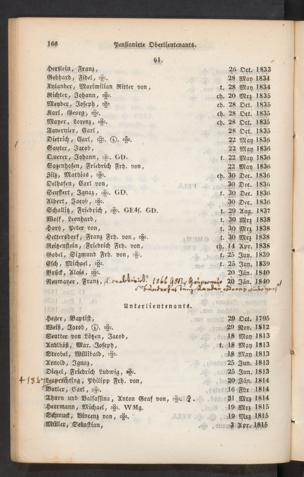 166 Pensionirte Oberlieutenants.
61.
Hertlein, Franz, 26 Oct. 1833
Gebhard, Fidel, 28 May 1834
Xylander, Maximilian Ritter von, t. 28 May 1834
Richter, Johann, ch. 20 Mrz 1835
Mayder, Joseph ch. 28 Oct. 1835
Karl, Georg, ch. 28 Oct. 1835
Mayer, Lorenz, ch. 28 Oct. 1835
Tavernier, Carl, 28 Oct. 1835
Dietrich, Carl, 22 May 1836
Sayler, Jacob, 22 May 1836
Querer, Johann, GD. t. 22 May 1836
Friedrich Frh. von, 22 May 1836
Filz, Mathias, ch. 30 Dec. 1836
Delhafen, Carl von, 30 Dec. 1836
Seuffert, Ignaz, GD. t. 30 Dec. 1836
Albert, Jacob, 30 Dec. 1836
Schallitz, Friedrich, t. 29 Aug. 1837
Wolf, Bernhard, t. 30 Mrz 1838
Hartz, Peter von, t. 30 Mrz 1838
Franz Frh. von, t. 30 Mrz 1838
Rotzenstein, Friedrich Frh. von, ch. 14 Apr. 1838
Gobel, Sigmund Frh. von, t. 25 Jun. 1839
Esch, Michael, t. 25 Jun. 1839
Alois, 20 Jän. 1840
Rosmayer, Franz, 20 Jän. 1840
Unterlieutenants.
Heger, Baptist, 29 Oct. 1795
Weiß, Jacob 29 Nov. 1812
Gottler von Tötzn, Jacob, 18 May 1813
Andlhöß, Max. Joseph, 18 May 1813
Strobel, Willibald, 18 May 1813
Arnold, Ignaz, 25 Jun. 1813
Diezel, Friedrich Ludwig 25 Jun. 1813
Philipp Frh. von, 20 Jän. 1814
Butler, Carl, 16 Feb. 1814
Thurn und Valsassina, Anton Graf von, 31 Mrz 1814
Herrmann, Michael, WMg. 19 Mrz 1815
Schmuck, Vincenz von, 19 Mrz 1815
Müller, Sebastian, 3 Apr. 1815